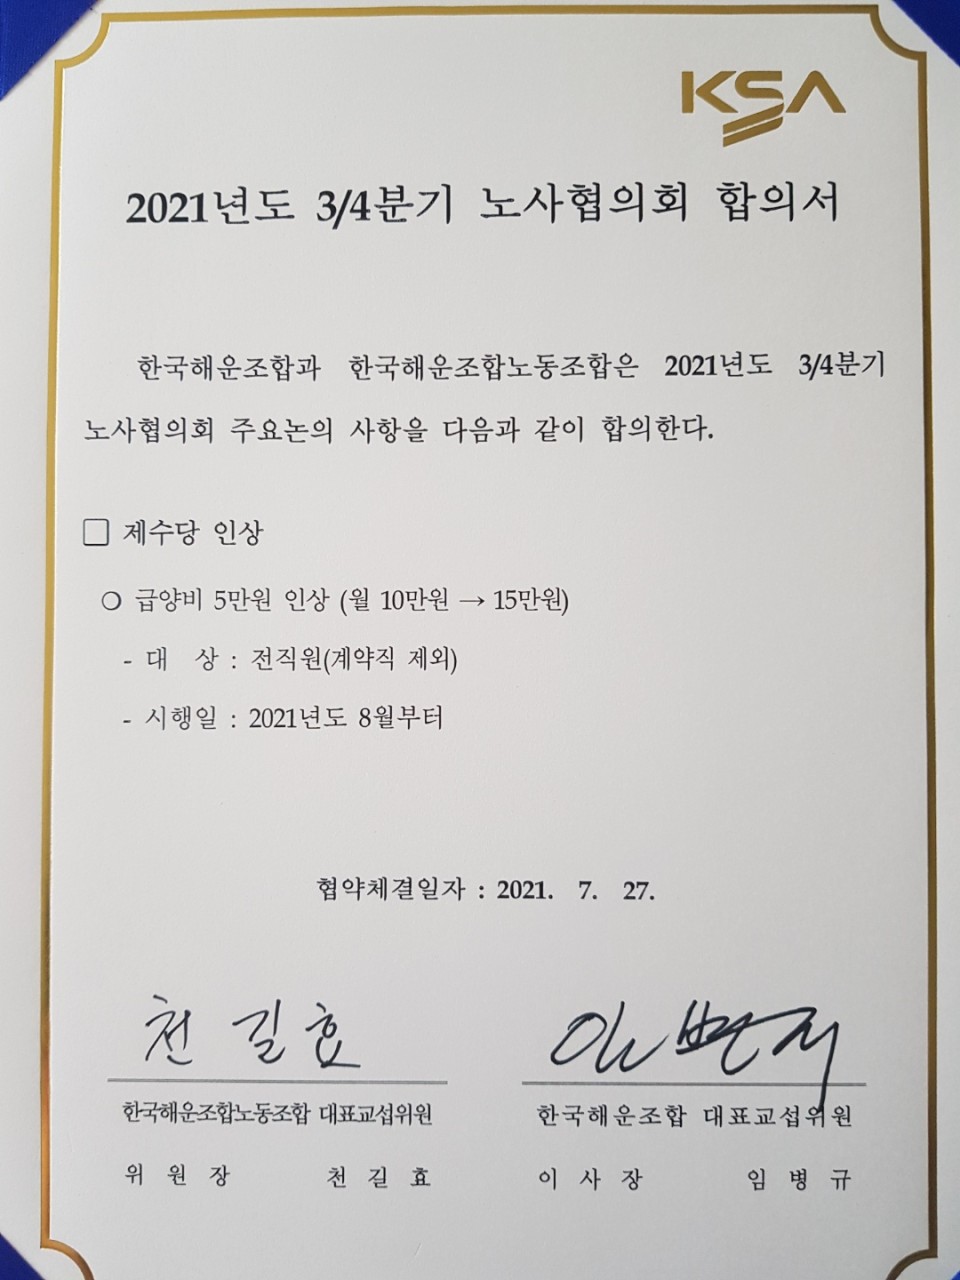 KSA
2021년도 3/4분기 노사협의회 합의서
한국해운조합과 한국해운조합노동조합은 2021년도 3/4분기
노사협의회 주요논의 사항을 다음과 같이 합의한다.
□ 제수당 인상
○ 급양비 5만원 인상 (월 10만원 → 15만원)
- 대 상 : 전직원(계약직 제외)
- 시행일 : 2021년도 8월부터
협약체결일자 : 2021. 7. 27.
천길효
한국해운조합노동조합 대표교섭위원
한국해운조합 대표교섭위원
위 원 장 천 길 효
이 사 장 임 병 규